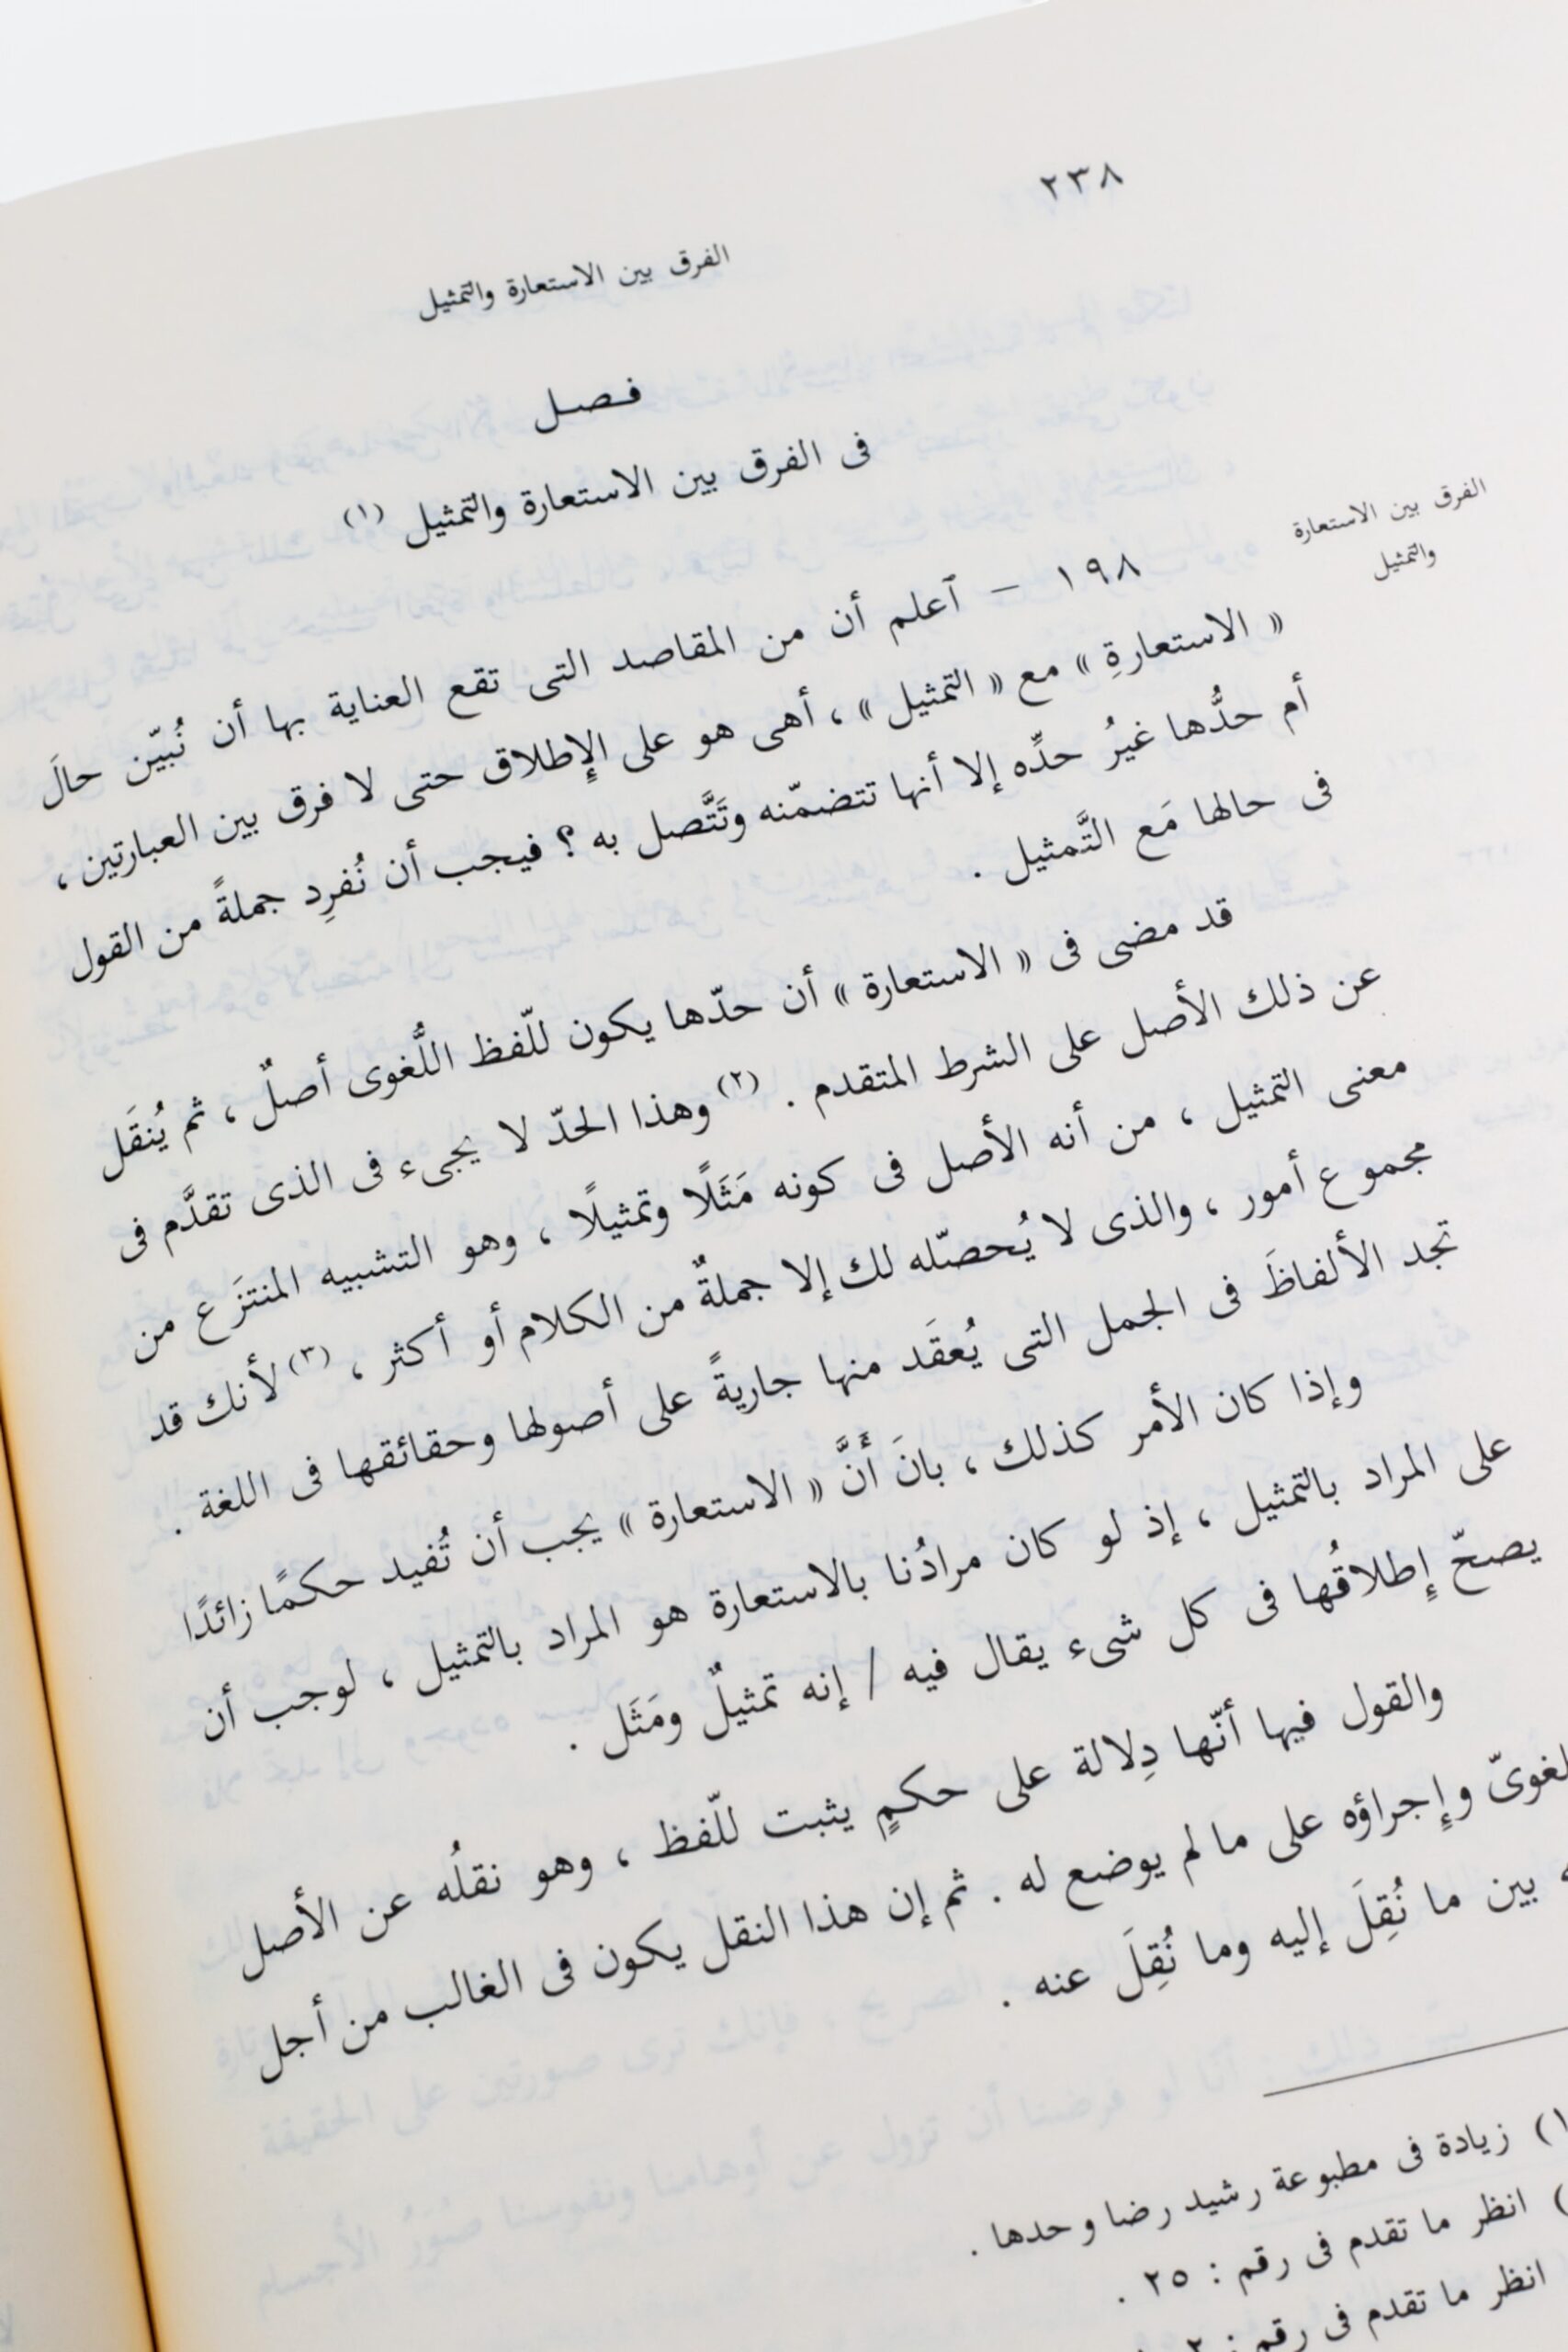 ٢٣٨
الفرق بين الاستعارة والتمثيل
فصل
فى الفرق بين الاستعارة والتمثيل (١)
الفرق بين الاستعارة
والتمثيل
١٩٨ – ٱعلم أن من المقاصد التى تقع العناية بها أن نُبيّن حالَ
« الاستعارةِ » مع « التمثيل » ، أهى هو على الإطلاق حتى لا فرق بين العبارتين ،
أم حدُّها غيرُ حدِّه إلا أنها تتضمّنه وتَتَّصل به ؟ فيجب أن نُفرِد جملةً من القول
فى حالها مَع التَّمثيل .
قد مضى فى « الاستعارة » أن حدّها يكون للّفظ اللُّغوى أصلٌ ، ثم يُنقَل
عن ذلك الأصل على الشرط المتقدم . (٢) وهذا الحدّ لا يجىء فى الذى تقدَّم فى
معنى التمثيل ، من أنه الأصل فى كونه مَثَلًا وتمثيلًا ، وهو التشبيه المنتزَع من
مجموع أمور ، والذى لا يُحصّله لك إلا جملةٌ من الكلام أو أكثر ، (٣) لأنك قد
تجد الألفاظَ فى الجمل التى يُعقَد منها جاريةً على أصولها وحقائقها فى اللغة .
وإذا كان الأمر كذلك ، بانَ أَنَّ « الاستعارة » يجب أن تُفيد حكمًا زائدًا
على المراد بالتمثيل ، إذ لو كان مرادُنا بالاستعارة هو المراد بالتمثيل ، لوجب أن
يصحّ إطلاقُها فى كل شىء يقال فيه / إنه تمثيلٌ ومَثَل .
والقول فيها أنّها دِلالة على حكمٍ يثبت للّفظ ، وهو نقلُه عن الأصل
لغوىّ وإجراؤه على ما لم يوضع له . ثم إن هذا النقل يكون فى الغالب من أجل
بين ما نُقِلَ إليه وما نُقِلَ عنه .
١) زيادة فى مطبوعة رشيد رضا وحدها .
) انظر ما تقدم فى رقم : ٢٥ .
انظر ما تقدم فى رقم :